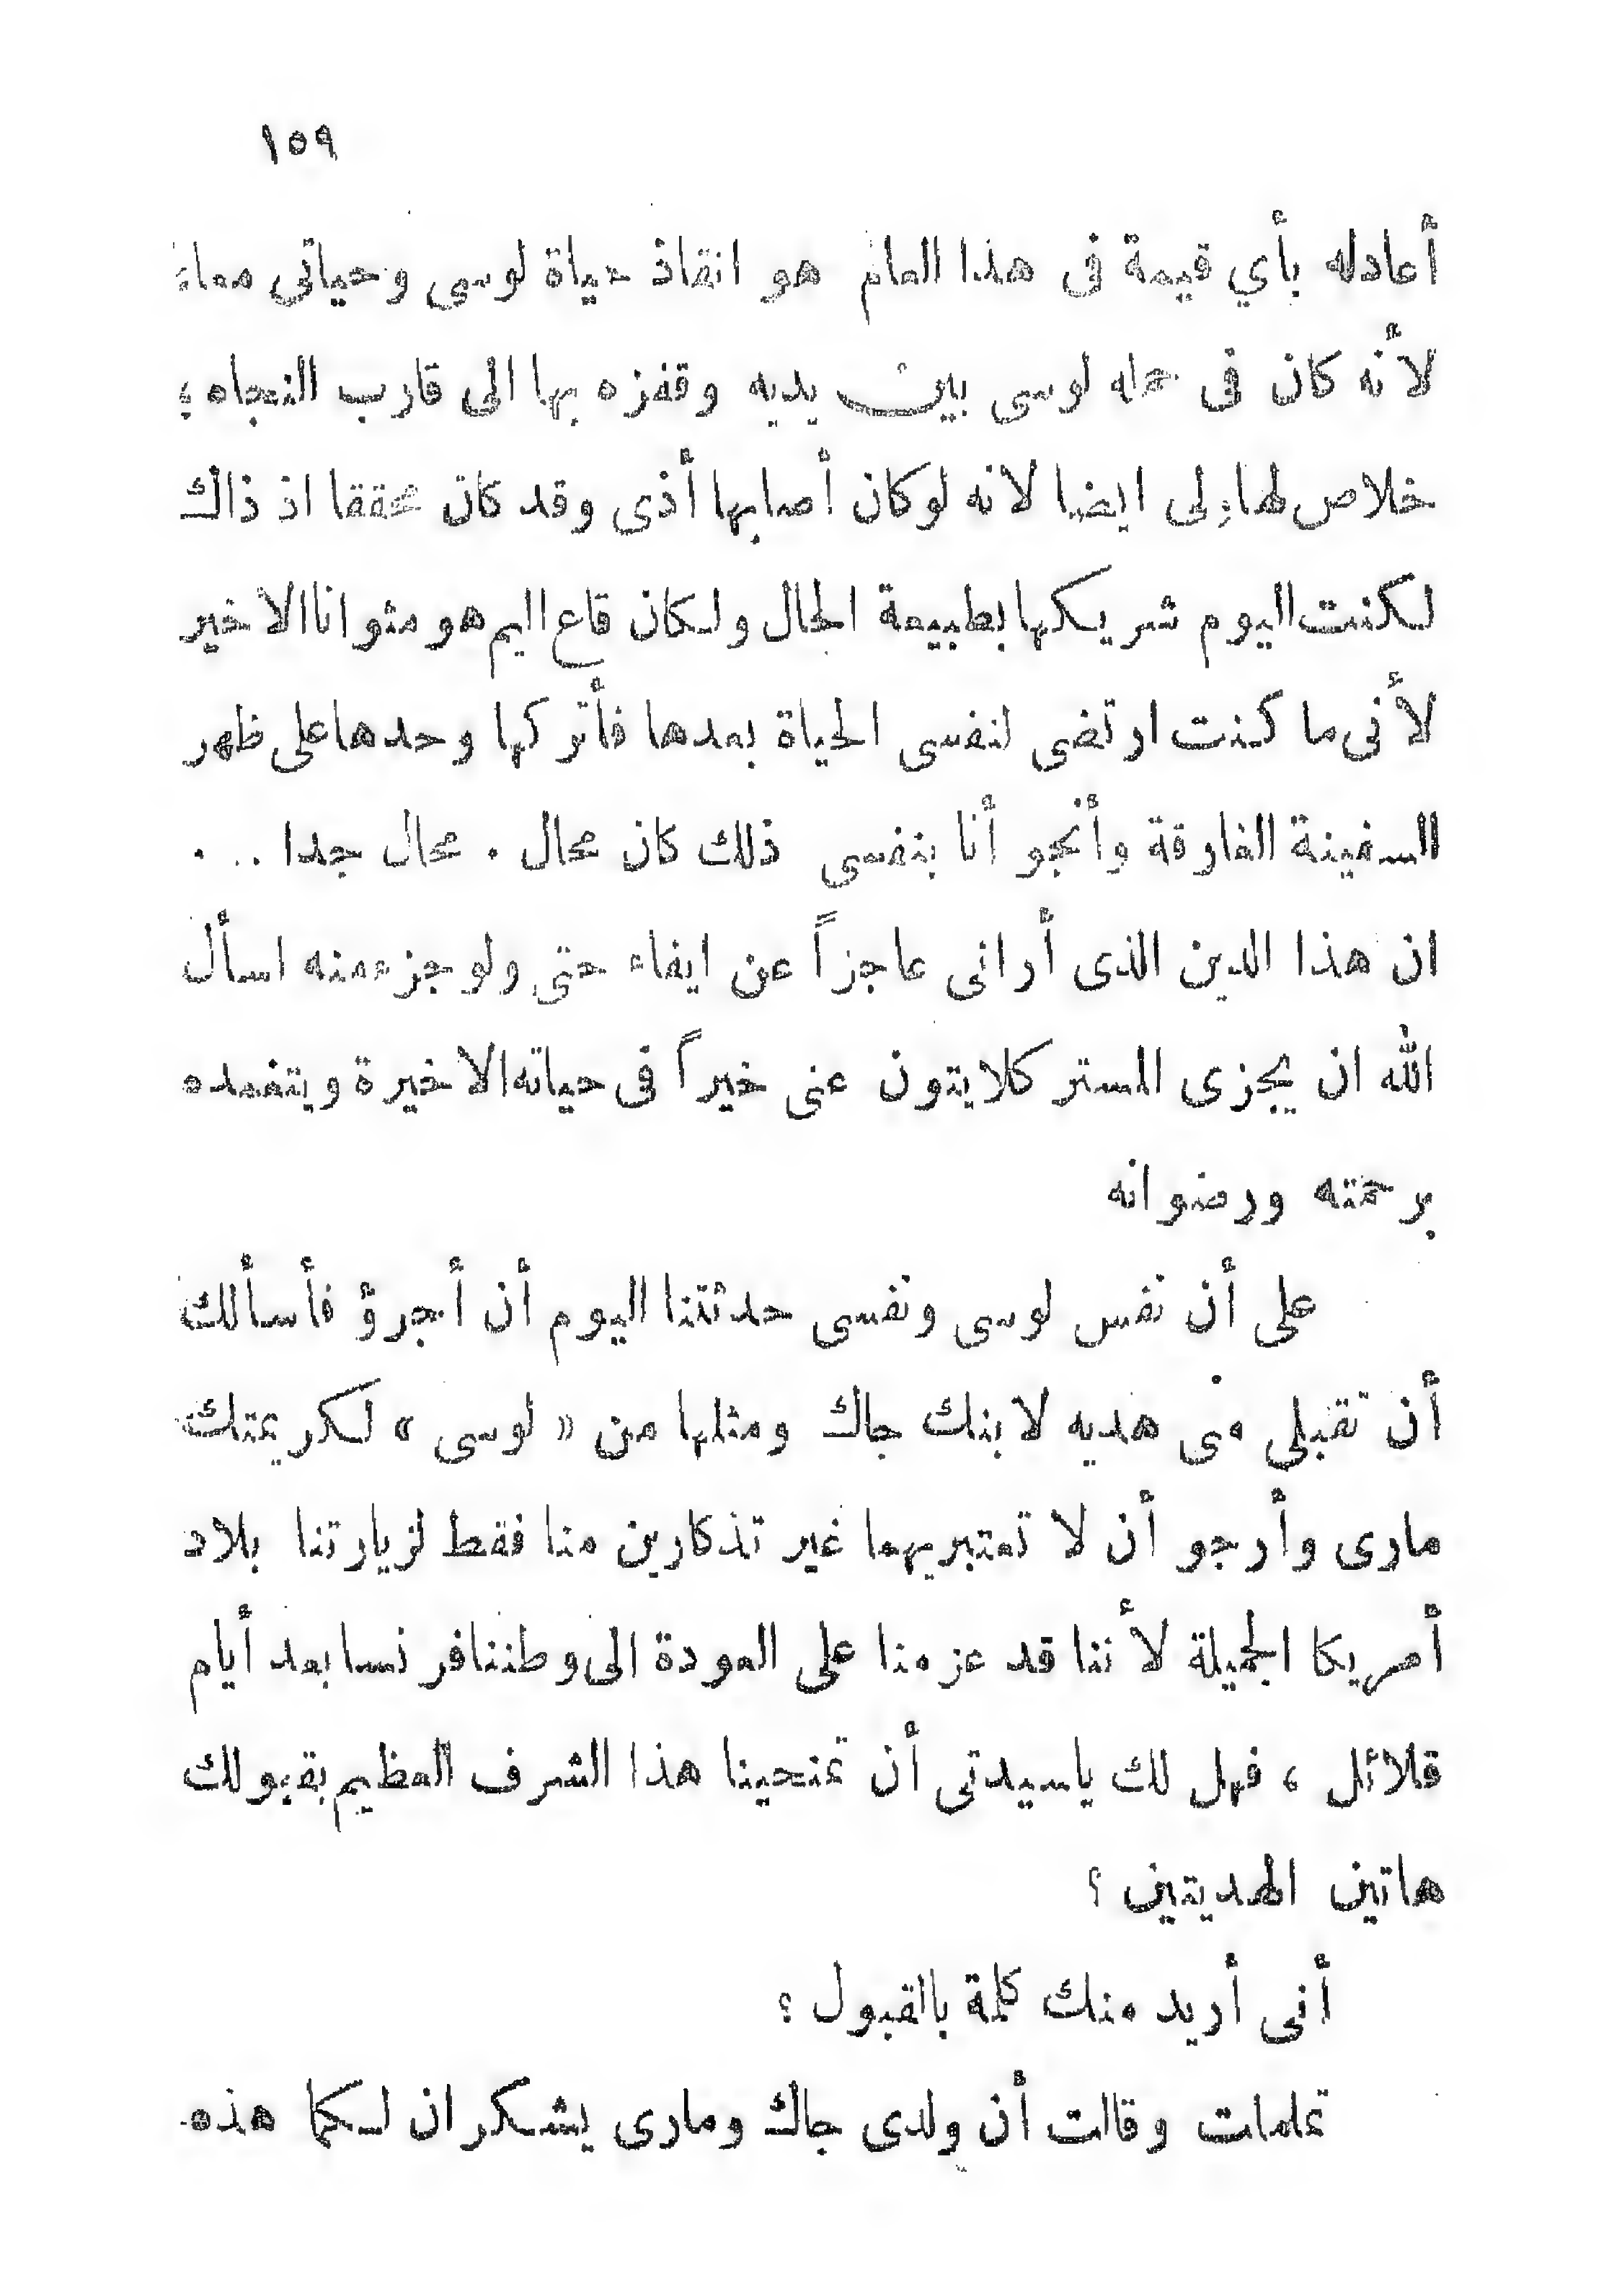 ١٥٩
أعادله بأي قيمة فى هذا العالم هو انقاذ حياة لوسى وحياتى معاً
لأنه كان فى حمله لوسى بين يديه وقفزه بها الى قارب النجاه ؛
خلاص لها ولى ايضا لانه لو كان أصابها أذى وقد كان محققا اذ ذاك
لكنت اليوم شريكها بطبيعة الحال ولكان قاع اليم هو مثوانا الاخير
لأنى ما كنت ارتضى لنفسى الحياة بعدها فأتركها وحدها على ظهر
السفينة الغارقة وأنجو أنا بنفسى ذلك كان محال . محال جدا . . .
ان هذا الدين الذى أرانى عاجزاً عن ايفاء حتى ولو جزء منه اسأل
الله ان يجزى المستر كلايتون عنى خيراً فى حياته الاخيرة ويتغمده
برحمته ورضوانه
على أن نفس لوسى ونفسى حدثتنا اليوم أن أجرؤ فأسألك
أن تقبلى منى هديه لابنك جاك ومثلها من « لوسى » لكريمتك
مارى وأرجو أن لا تعتبريهما غير تذكارين منا فقط لزيارتنا بلاد
أمريكا الجميلة لأننا قد عزمنا على العودة الى وطننا فرنسا بعد أيام
قلائل ، فهل لك ياسيدتى أن تمنحينا هذا الشرف العظيم بقبولك
هاتين الهديتين ؟
أنى أريد منك كلمة بالقبول ؟
تململت وقالت أن ولدى جاك ومارى يشكران لكما هذه